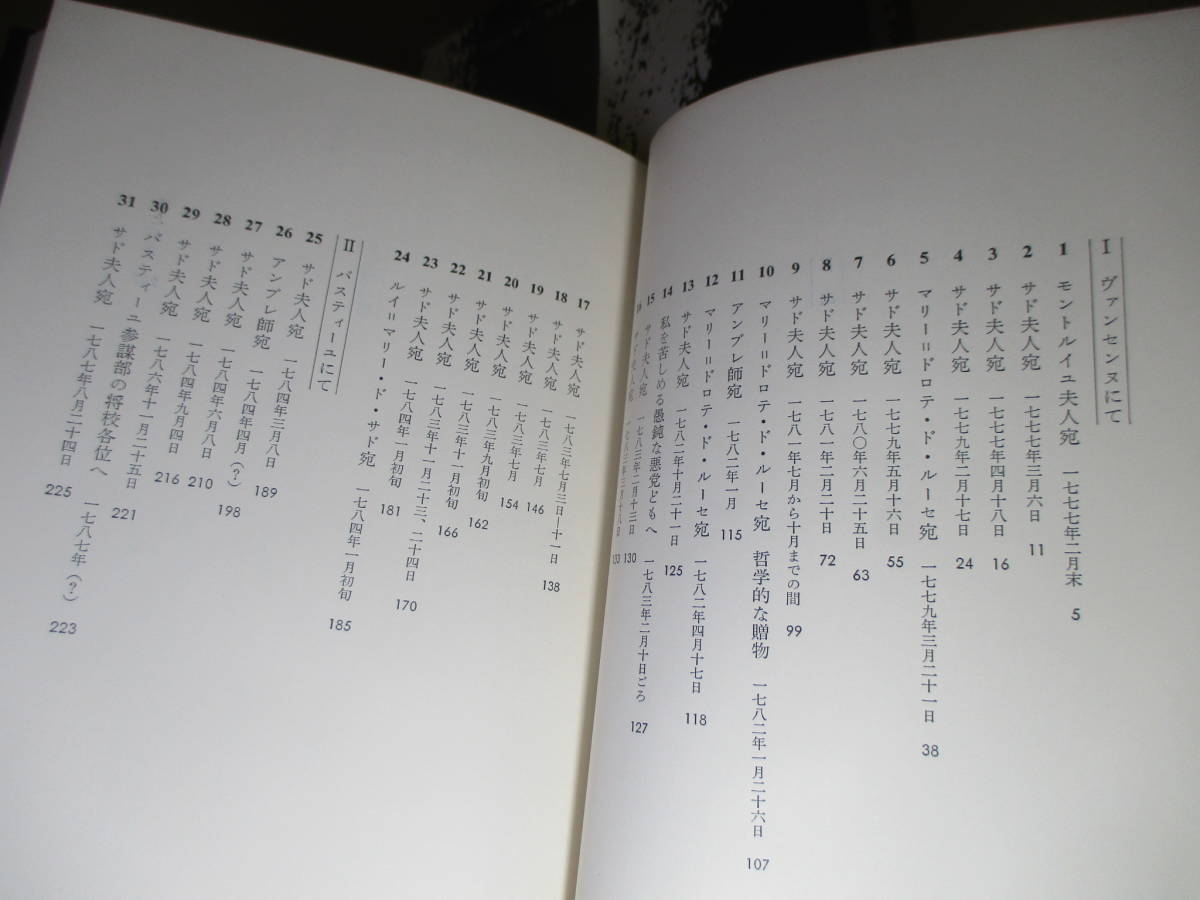 I ヴァンセンヌにて
1 モントルイユ夫人宛 一七七七年二月末 5
2 サド夫人宛 一七七七年三月六日 11
3 サド夫人宛 一七七七年四月十八日 16
4 サド夫人宛 一七七九年二月十七日 24
5 マリー=ドロテ・ド・ルーセ宛 一七七九年三月二十一日 38
6 サド夫人宛 一七七九年五月十六日 55
7 サド夫人宛 一七八〇年六月二十五日 63
8 サド夫人宛 一七八一年二月二十日 72
9 サド夫人宛 一七八一年七月から十月までの間 99
10 マリー=ドロテ・ド・ルーセ宛 哲学的な贈物 一七八二年一月二十六日 107
11 アンブレ師宛 一七八二年一月 115
12 マリー=ドロテ・ド・ルーセ宛 一七八二年四月十七日 118
13 サド夫人宛 一七八二年十月二十一日 125
14 私を苦しめる愚鈍な悪党どもへ 一七八三年二月十日ごろ 127
15 サド夫人宛 一七八三年二月十三日 130
16 サド夫人宛 133
17 サド夫人宛 一七八三年七月三日—十一日 138
18 サド夫人宛 一七八三年七月 146
19 サド夫人宛 一七八三年七月 154
20 サド夫人宛 一七八三年九月初旬 162
21 サド夫人宛 一七八三年十一月初旬 166
22 サド夫人宛 一七八三年十一月二十三、二十四日 170
23 サド夫人宛 一七八四年一月初旬 181
24 ルイ=マリー・ド・サド宛 一七八四年一月初旬 185
II バスティーユにて
25 サド夫人宛 一七八四年三月八日 189
26 アンブレ師宛 一七八四年四月(?) 198
27 サド夫人宛 一七八四年六月八日 210
28 サド夫人宛 一七八四年九月四日 216
29 サド夫人宛 一七八六年十一月二十五日 221
30 バスティーユ参謀部の将校各位へ 一七八七年(?) 223
31 サド夫人宛 一七八七年八月二十四日 225